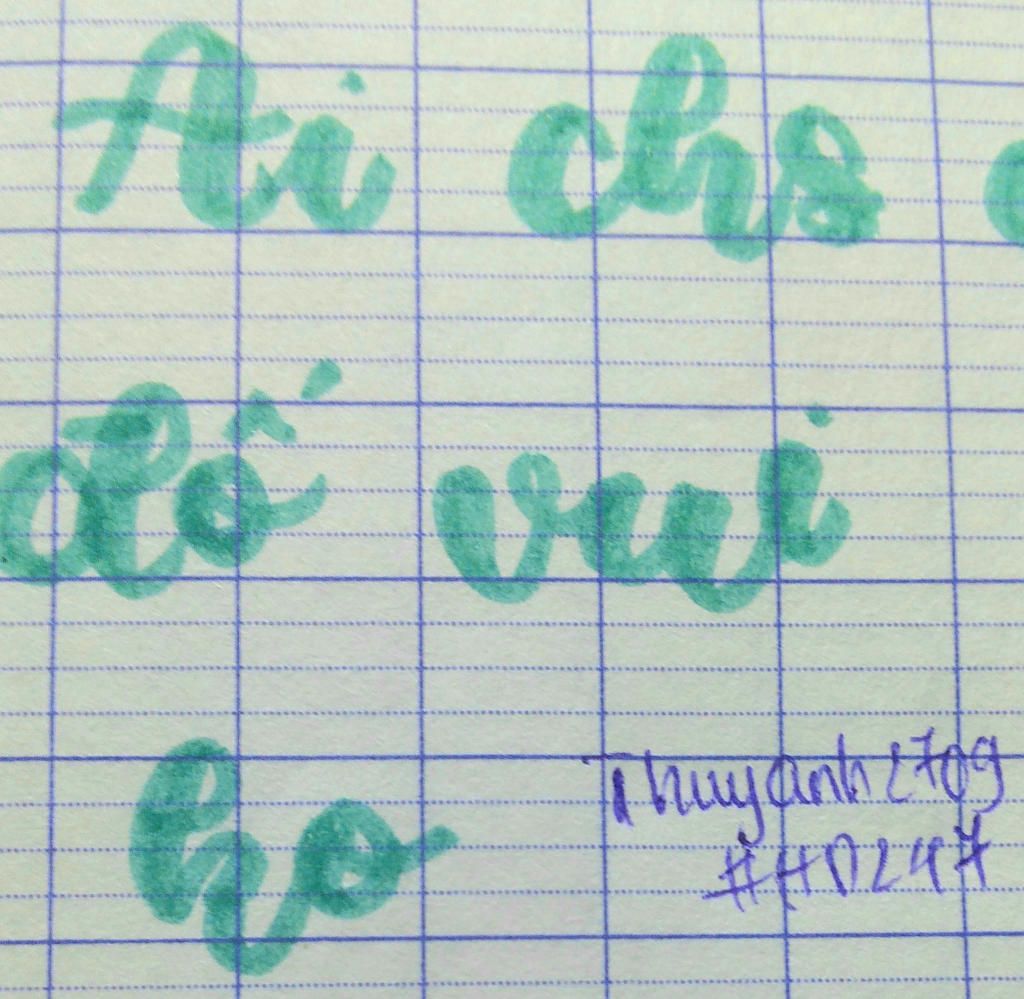 Ai chs
đố vui
ho
Thuyanh2709
#HD247